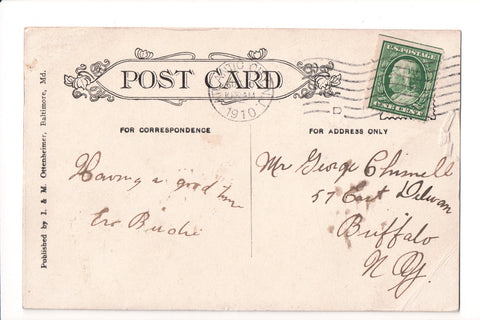 POST CARD
ATLANTIC CITY
1910
U.S. POSTAGE
ONE CENT
D
FOR CORRESPONDENCE
FOR ADDRESS ONLY
Published by I. & M. Ottenheimer, Baltimore, Md.
Having a good time
Mr George
57 East Delavan
Buffalo
N Y.